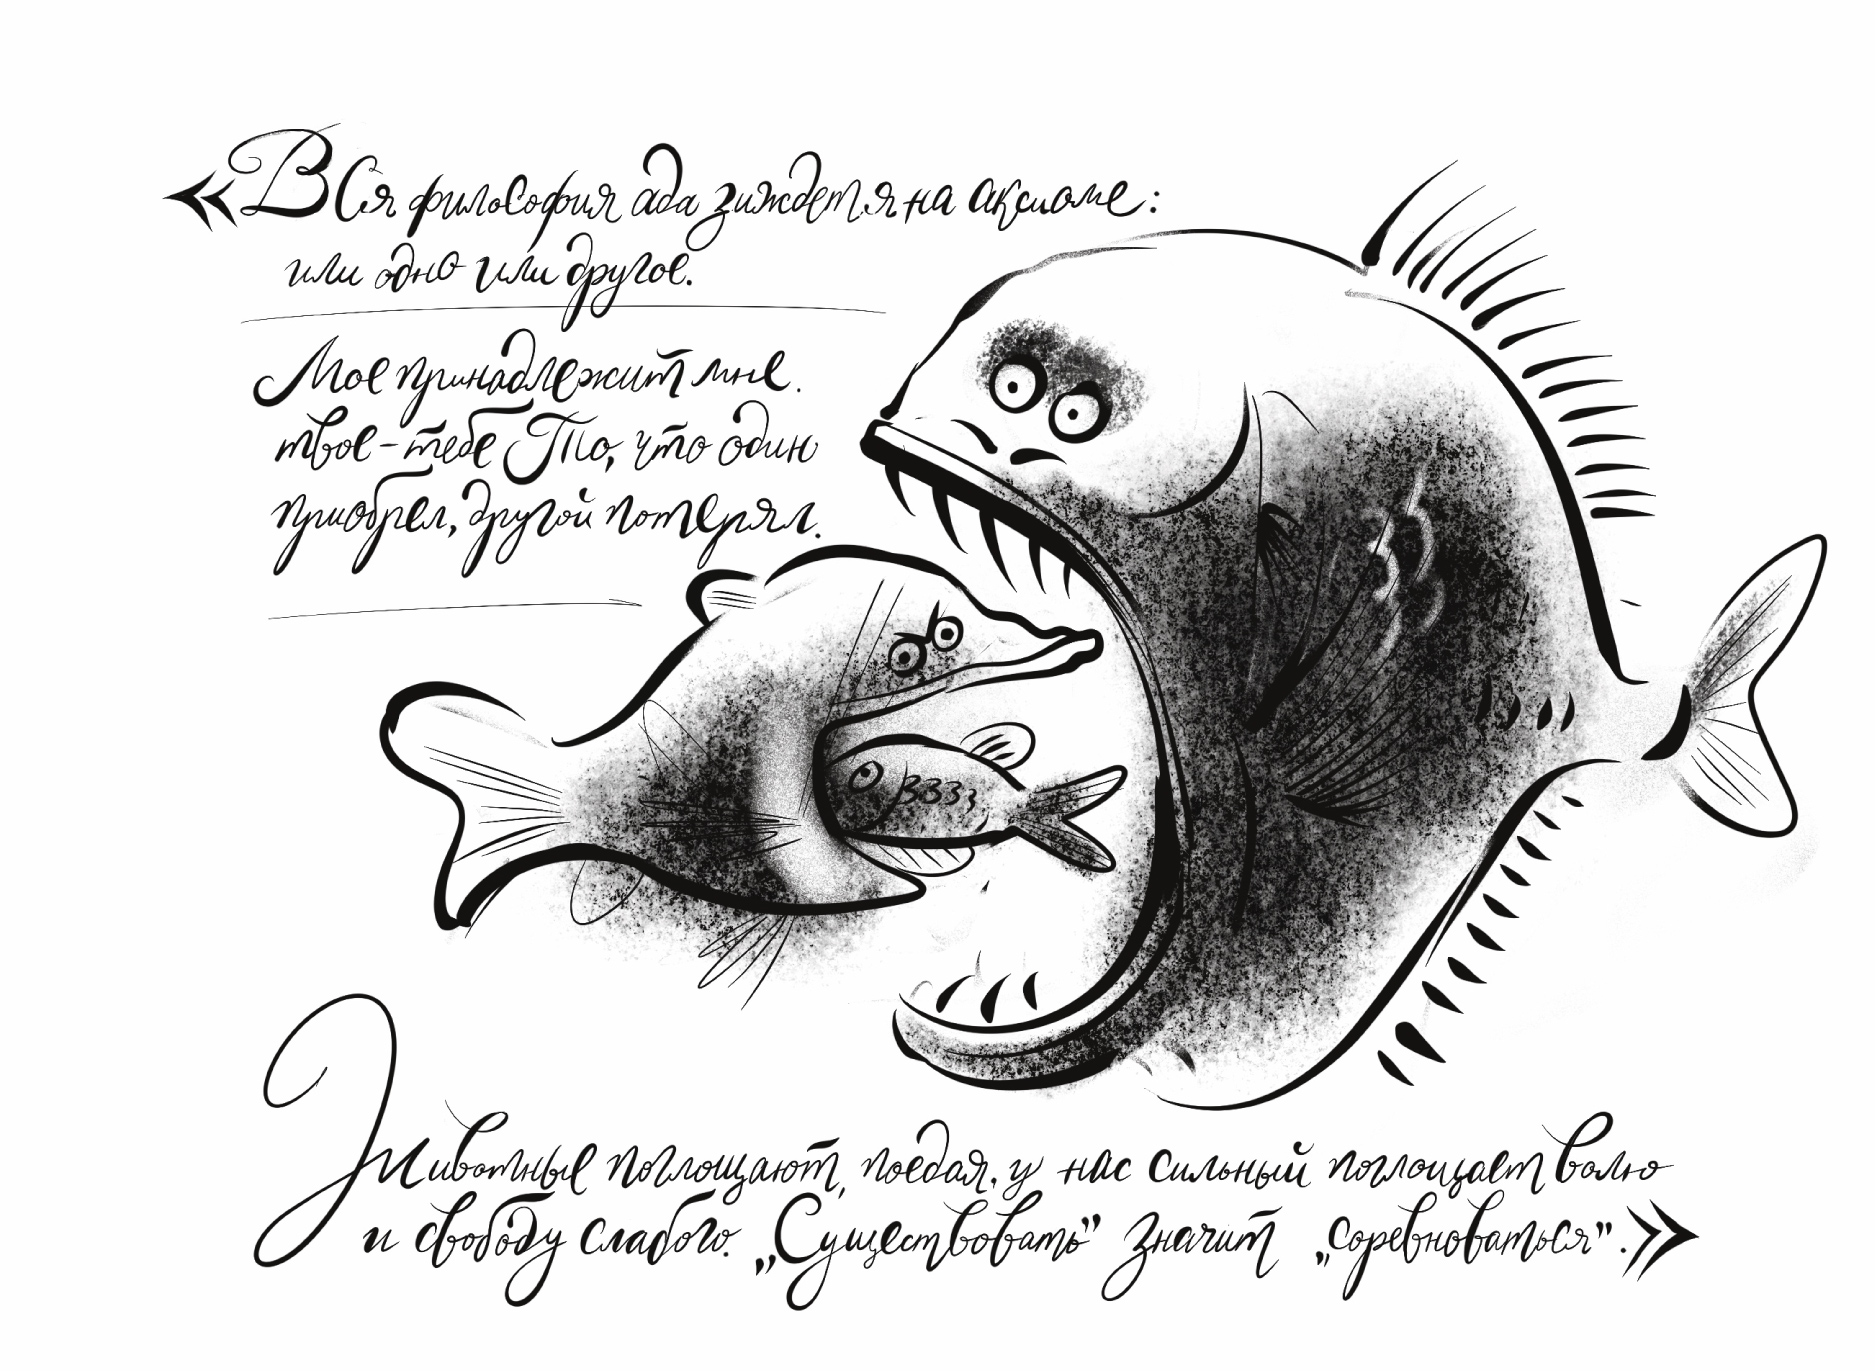 «Вся философия ада зиждется на аксиоме:
или одно или другое.
Мое принадлежит мне.
твое – тебе То, что один
приобрел, другой потерял.
Животные поглощают, поедая. у нас сильный поглощает волю
и свободу слабого. „Существовать” значит „соревноваться”.»